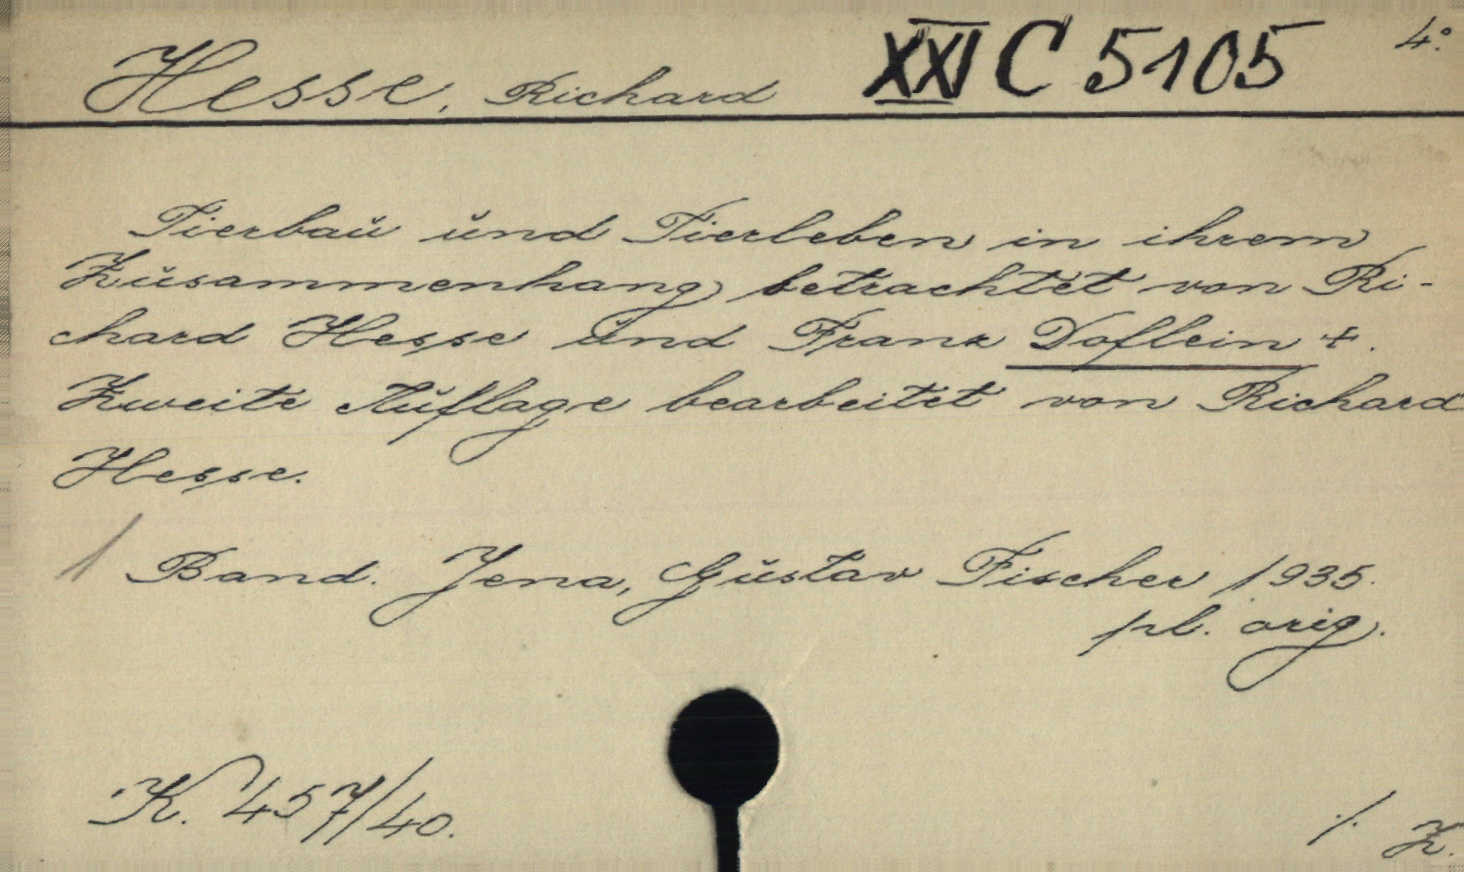 Hesse, Richard XXI C 5105 4°.
Tierbau und Tierleben in ihrem
Zusammenhang betrachtet von Ri-
chard Hesse und Franz Doflein +.
Zweite Auflage bearbeitet von Richard
Hesse.
1 Band. Jena, Gustav Fischer 1935.
pl. orig.
K. 457/40.
/. Z.